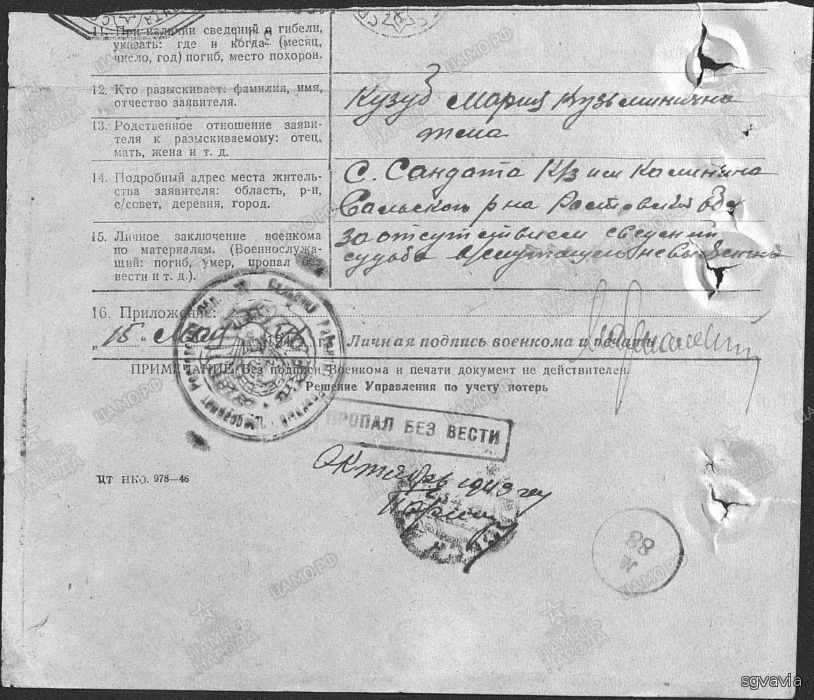 11. При наличии сведений о гибели,
указать: где и когда (месяц,
число, год) погиб, место похорон.
12. Кто разыскивает: фамилия, имя,
отчество заявителя.
Кузуб Мария Кузьминична
13. Родственное отношение заяви-
теля к разыскиваемому: отец,
мать, жена и т. д.
жена
14. Подробный адрес места житель-
ства заявителя: область, р-н,
с/совет, деревня, город.
С. Сандата К/з им Калинина
Сальского р на Ростовской обл
15. Личное заключение военкома
по материалам. (Военнослужа-
щий: погиб, умер, пропал без
вести и т. д.).
За отсутствием сведений
судьба
16. Приложение:
"15" Мая 194 г. Личная подпись военкома и печать
ПРИМЕЧАНИЕ: Без подписи Военкома и печати документ не действителен.
Решение Управления по учету потерь
ПРОПАЛ БЕЗ ВЕСТИ
Октябрь 1943 г.
ЦТ НКО. 978—46
88
ПАМЯТЬ НАРОДА
ЦАМО.РФ
sgvavia